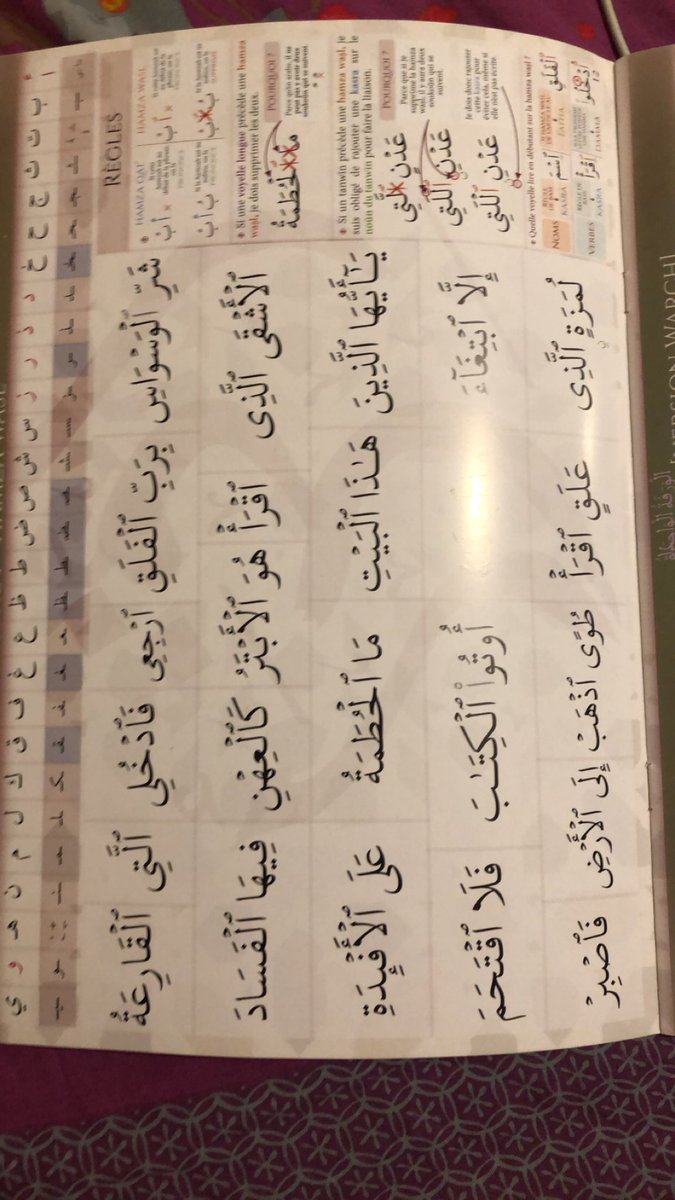 أ ب ت ث ج ح خ د ذ ر ز س ش ص ض ط ظ ع غ ف ق ك ل م ن هـ و ي
RÈGLES
HAMZA QAT'
HAMZA WASL
♦ Si une voyelle longue précède une hamza
wasl, je dois supprimer les deux.
POURQUOI ?
مَا ٱلْحُطَمَةُ
♦ Si un tanwin précède une hamza wasl, je
suis obligé de rajouter une kasra sur le
noûn du tanwin pour faire la liaison.
POURQUOI ?
Parce que si je
supprime la hamza
wasl, il y aura deux
soukoûn qui se
suivent.
Je dois donc rajouter
cette kasra pour
éviter cela, même si
elle n'est pas écrite.
عَدْنٍ ٱلَّتِي
عَدْنٍ ٱلَّتِي
عَدْنٍ ٱلَّتِي
♦ Quelle voyelle lire en débutant sur la hamza wasl ?
NOMS
KASRA
FATHA
ٱلْفَلَقِ
VERBES
KASRA
DAMMA
ٱقْرَأْ
ٱدْخُلُوا
شَرِّ ٱلْوَسْوَاسِ بِرَبِّ ٱلْفَلَقِ ٱرْجِعِي فَٱدْخُلِي ٱلَّتِي ٱلْقَارِعَةُ
ٱلْأَشْقَى ٱلَّذِى ٱقْرَأْ هُوَ ٱلْأَبْتَرُ كَٱلْعِهْنِ فِيهَا ٱلْفَسَادَ
يَـٰٓأَيُّهَا ٱلَّذِينَ هَـٰذَا ٱلْبَيْتِ مَا ٱلْحُطَمَةُ عَلَى ٱلْأَفْـِٔدَةِ
إِلَّا ٱبْتِغَآءَ أُوتُوا۟ ٱلْكِتَـٰبَ فَلَا ٱقْتَحَمَ
لُمَزَةٍ ٱلَّذِى عَلَقٍ ٱقْرَأْ طُوًى ٱذْهَبْ إِلَى ٱلْأَرْضِ فَٱصْبِرْ